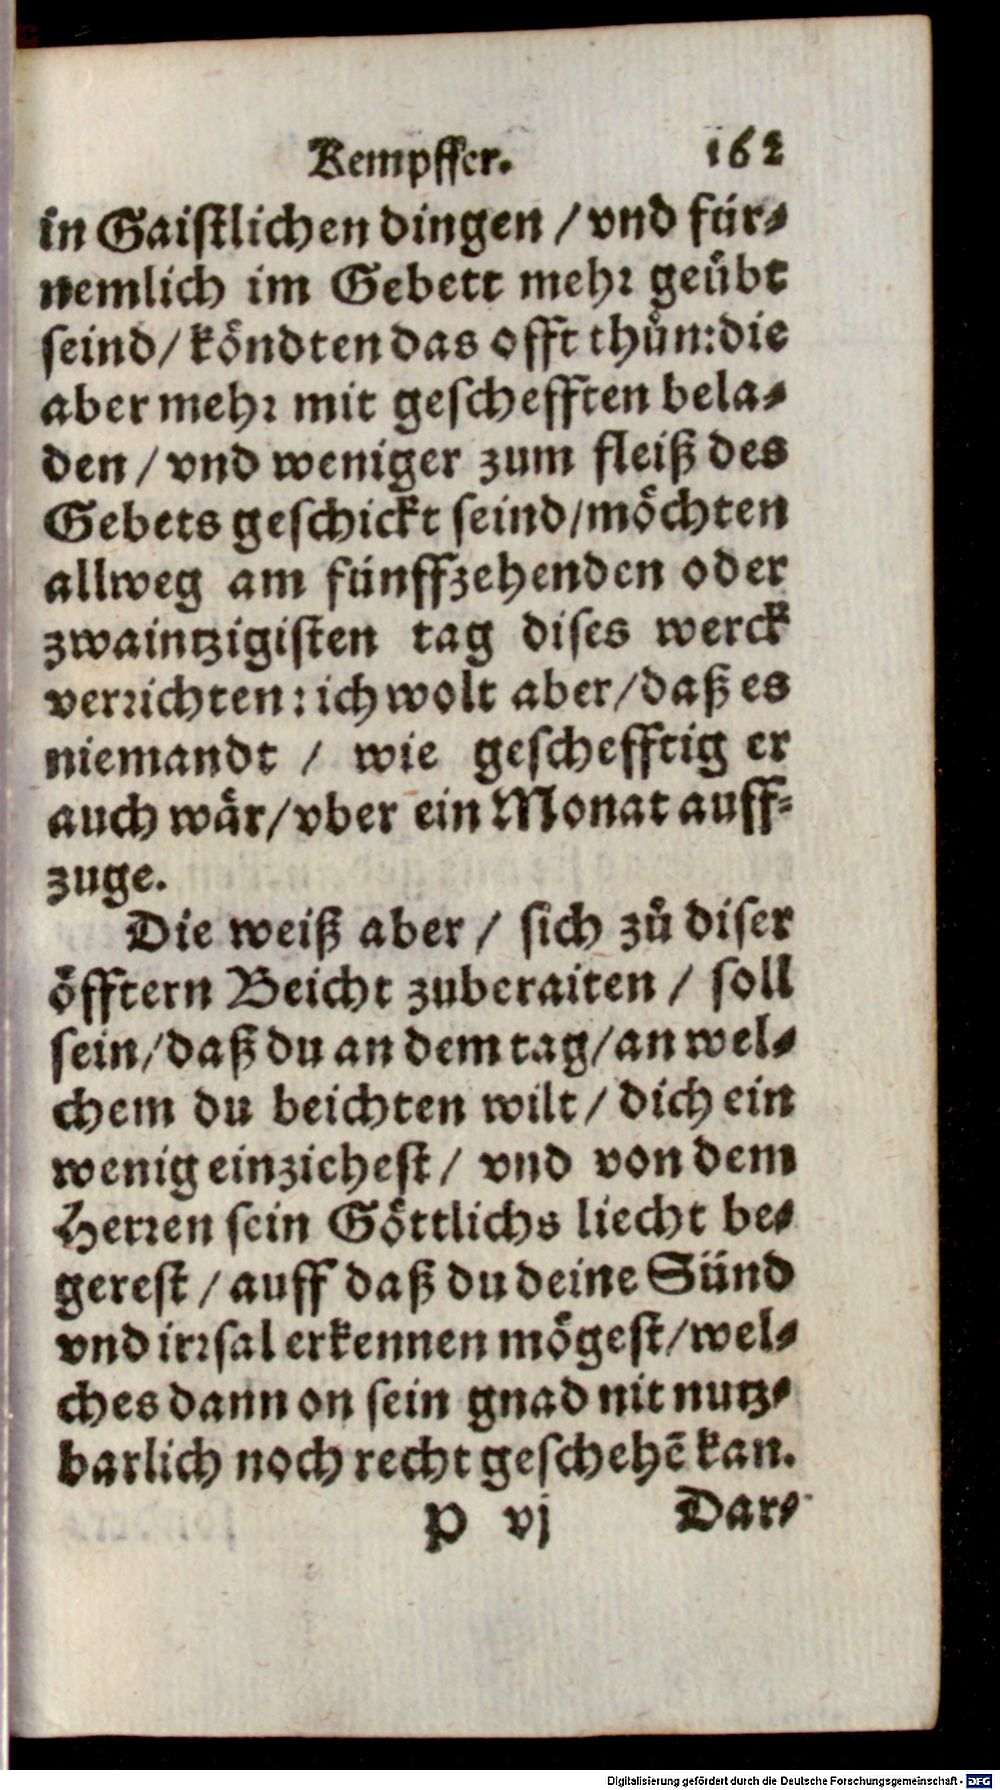 Kempffer. 162
in Gaistlichen dingen / vnd für⸗
nemlich im Gebett mehr geübt
seind / köndten das offt thůn: die
aber mehr mit geschefften bela⸗
den / vnd weniger zum fleiß des
Gebets geschickt seind / möchten
allweg am fünffzehenden oder
zwaintzigisten tag dises werck
verrichten: ich wolt aber / daß es
niemandt / wie gescheff­tig er
auch wär / vber ein Monat auff⸗
zuge.
Die weiß aber / sich zů diser
öfftern Beicht zuberaiten / soll
sein / daß du an dem tag / an wel⸗
chem du beichten wilt / dich ein
wenig einziehest / vnd von dem
Herren sein Göttlichs liecht be⸗
gerest / auff daß du deine Sünd
vnd irrsal erkennen mögest / wel⸗
ches dann on sein gnad nit nutz⸗
barlich noch recht geschehē kan.
P vj Dar⸗
Digitalisierung gefördert durch die Deutsche Forschungsgemeinschaft - DFG